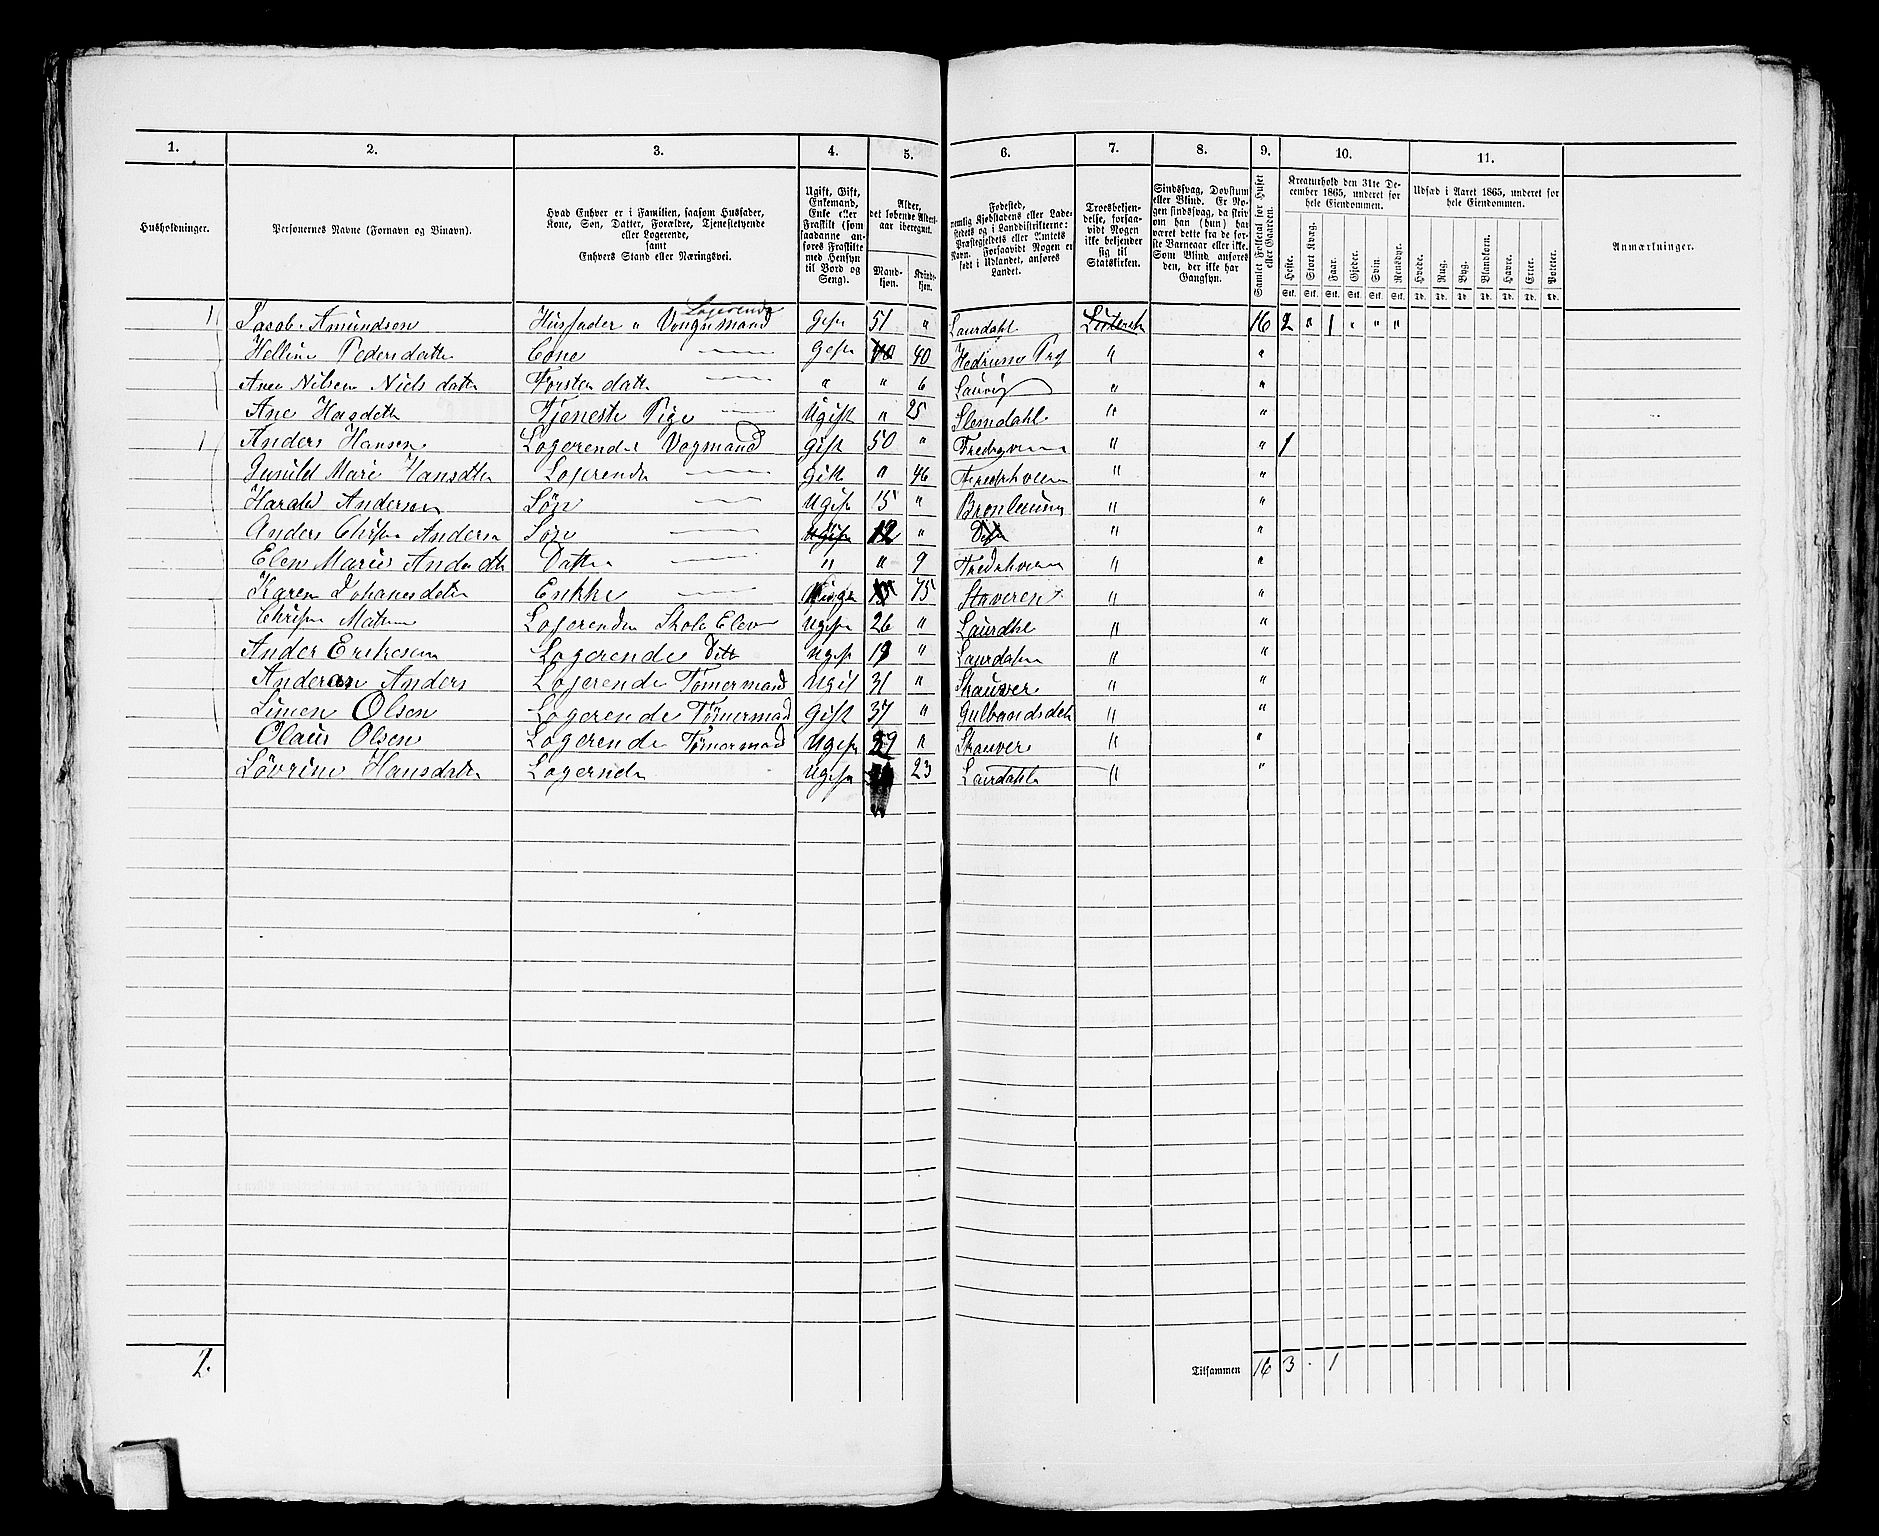 1. 2. 3. 4. 5. 6. 7. 8. 9. 10. 11.
Husholdninger.
Personernes Navne (Fornavn og Binavn).
Hvad Enhver er i Familien, saasom Husfader,
Kone, Søn, Datter, Forældre, Tjenestetyende
eller Logerende,
samt
Enhvers Stand eller Næringsvei.
Ugift, Gift,
Enkemand,
Enke eller
Fraskilt (som
saadanne an-
føres Fraskilte
med Hensyn
til Bord og
Seng).
Alder,
det løbende Alders-
aar iberegnet.
Mand-
kjøn.
Kvinde-
kjøn.
Fødested,
nemlig Kjøbstadens eller Lade-
stedets og i Landdistrikterne:
Præstegjeldets eller Amtets
Navn. Forsaavidt Nogen er
født i Udlandet, anføres
Landet.
Troesbekjen-
delse, forsaa-
vidt Nogen
ikke bekjender
sig til
Statskirken.
Sindssvag, Døvstum
eller Blind. Er No-
gen sindssvag, da skriv
om han (hun) har
været dette fra de før-
ste Barneaar eller ikke.
Som Blind anføres
den, der ikke har
Gangsyn.
Samlet Folketal for Huset
eller Gaarden.
Kreaturhold den 31te De-
cember 1865, underet for
hele Eiendommen.
Heste. Stort Kvæg. Faar. Gjeder. Svin. Rensdyr.
Stk. Stk. Stk. Stk. Stk. Stk.
Udsæd i Aaret 1865, underet for
hele Eiendommen.
Hvede. Rug. Byg. Blandkorn. Havre. Erter. Poteter.
Td. Td. Td. Td. Td. Td. Td.
Anmærkninger.
Logerende
1 Jacob Amundsen Husfader " Vongnmand Gift 51 " Laurdahl Lutersk 16 2 " 1 " " "
Helline Pedersdatte Cone Gift 40 40 Hedrum Prg " "
Ane Nilsen Niels datte Forster datte " " 6 Laurvig " "
Ane Hasdeth Tjeneste Pige Ugift " 25 Slemdahl " "
1 Anders Hansen Logerende Vogmand Gift 50 " " " 1
Gunild Mari Hansdtn Logerende Gift " 46 " "
Harald Andersen Søn Ugift 15 " " "
Anders Chrisn Andersn Søn Ugift 12 " " "
Elen Marie Anders dtt Datter " " 9 " "
Karen Johanesdeter Enkke 75 Staveren " "
Chrisn Matsen Logerende Skole Elev Ugift 26 " Laurdhl " "
Ander Eriksen Logerende Ditt Ugift 19 " Laurdalen " "
Anderan Anders Logerende Tømermand Ugif 31 " Skauver " "
Simen Olsen Logerende Tømermand Gift 37 " Gulbrandsdel " "
Olaus Olsen Logerende Tømermand Ugift 29 " Skauver " "
Lovrine Hansdatter Logernde Ugift 23 Laurdahl " "
2. Tilsammen 16 3 . 1